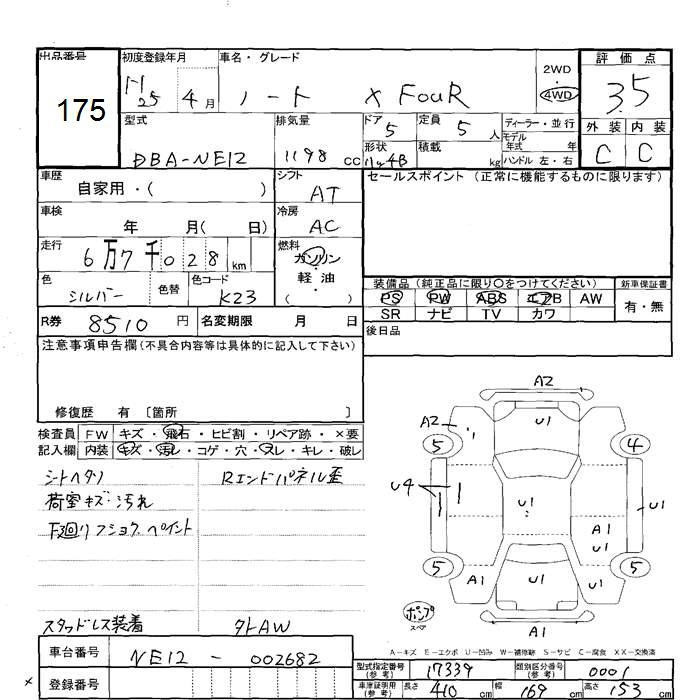 出品番号 初度登録年月 車名・グレード 2WD・4WD 評価点
175 H25 4月 ノート X FOUR 3.5
型式 排気量 ドア 5 定員 5人 ディーラー・並行 外装 内装
DBA-NE12 1198 CC 形状 積載 kg モデル年式 年 C C
ハンドル 左・右
車歴 自家用・( ) シフト AT セールスポイント (正常に機能するものに限ります)
車検 年 月( 日) 冷房 AC
走行 6万7千028km 燃料 ガソリン・軽油・( )
色 シルバー 色替 色コード K23 装備品 (純正品に限り○をつけてください) 新車保証書
PS PW ABS エアB AW 有・無
R券 8510円 名変期限 月 日 SR ナビ TV カワ
注意事項申告欄(不具合内容等は具体的に記入して下さい) 後日品
修復歴 有 〔箇所 〕
検査員 FW キズ・飛石・ヒビ割・リペア跡・×要
記入欄 内装 キズ・汚レ・コゲ・穴・スレ・キレ・破レ
シートヘタリ Rエンドパネル歪
荷室キズ・汚れ
下廻り
ペイント
スタッドレス装着
A2
A2 U1
5 4
U4 U1 U1
A1
U1
5 5
A1 U1 U1
ポンプ
スペア A1
A-キズ E-エクボ U-凹み W-補修跡 S-サビ C-腐食 XX-交換済
車台番号 NE12-002682
型式指定番号(参考) 17339 類別区分番号(参考) 0001
登録番号 車庫証明用(参考) 長さ 410cm 幅 169cm 高さ 153cm